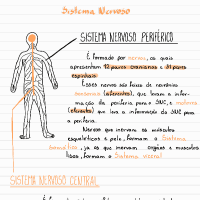 Sistema Nervoso
SISTEMA NERVOSO PERIFÉRICO
É formado por nervos, os quais
apresentam 12 pares cranianos e 31 pares
espinhais.
Esses nervos são feixes de neurônios
sensoriais (aferentes), que levam a infor-
mação da periferia para o SNC, e motores
(eferentes) que leva a informação do SNC para
a periferia.
Nervos que inervam os músculos
esqueléticos e pele, formam o Sistema
Somático, já os que inervam órgãos e músculos
lisos, formam o Sistema visceral
SISTEMA NERVOSO CENTRAL